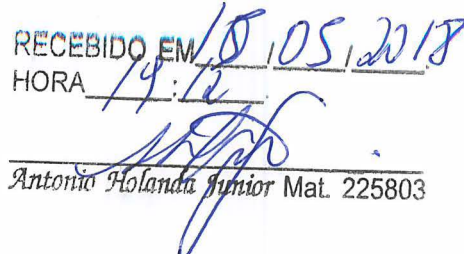 RECEBIDO EM 18 / 05 / 2018
HORA 14 : 12
Antonio Holanda Junior Mat. 225803